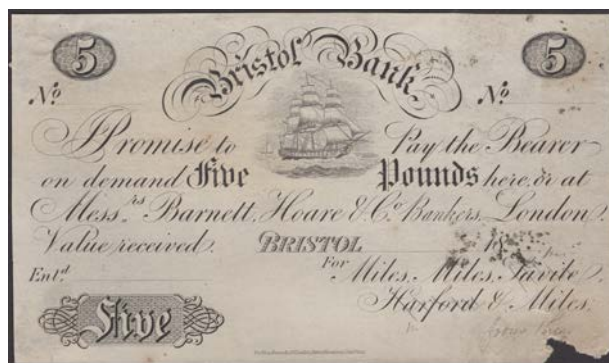 5 5
Bristol Bank
No No
I Promise to Pay the Bearer
on demand Five Pounds here, or at
Mess.rs Barnett, Hoare & Co. Bankers, London.
Value received. BRISTOL 18
Ent.d For Miles, Miles, Savile,
Harford & Miles.
Five